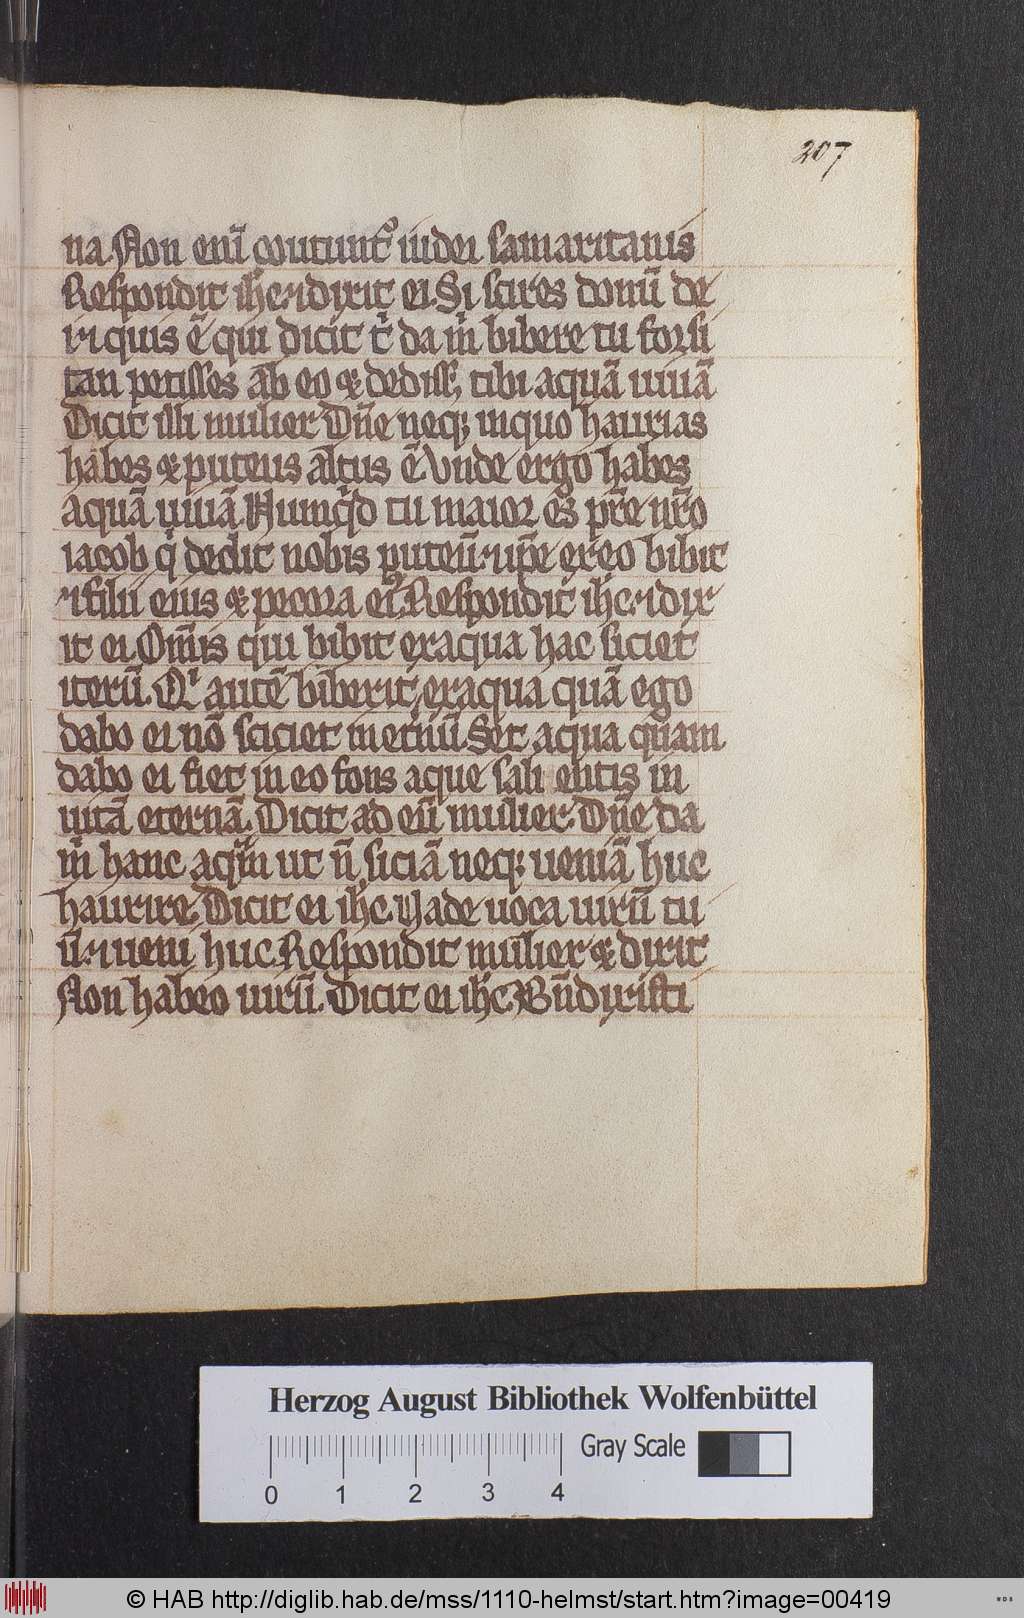 207
na. Non enī coutunt᷒ iudei samaritanis
Respondit ihc ⁊ dixit ei. Si scires donū de
i ⁊ quis ē qui dicit t̄ da m̄ bibere tu forsi
tan petisses ab eo & dediss; tibi aquā uiuā
Dicit illi mulier Dn̄e neq; inquo haurias
habes & puteus altus ē Vnde ergo habes
aquā uiuā Numq̄d tu maior es pr̄e nr̄o
iacob q̄ dedit nobis puteū ⁊ ip̄e ex eo bibit
⁊ filii eius & pecora ei᷒ Respondit ihc ⁊ dix
it ei Om̄is qui bibit exaqua hac siciet
iterū. Qi autē biberit exaqua quā ego
dabo ei nō sciciet inet̄nū Set aqua quam
dabo ei fiet in eo fons aque sali entis in
uitā eternā. Dicit ad eū mulier. Dn̄e da
m̄ hanc aqm̄ ut n̄ siciā neq; ueniā huc
haurire. Dicit ei ihc. Vade uoca uirū tu
ū. ⁊ ueni huc. Respondit mulier & dixit
Non habeo uirū. Dicit ei ihc Bn̄ dixisti
Herzog August Bibliothek Wolfenbüttel
Gray Scale
0 1 2 3 4
© HAB http://diglib.hab.de/mss/1110-helmst/start.htm?image=00419